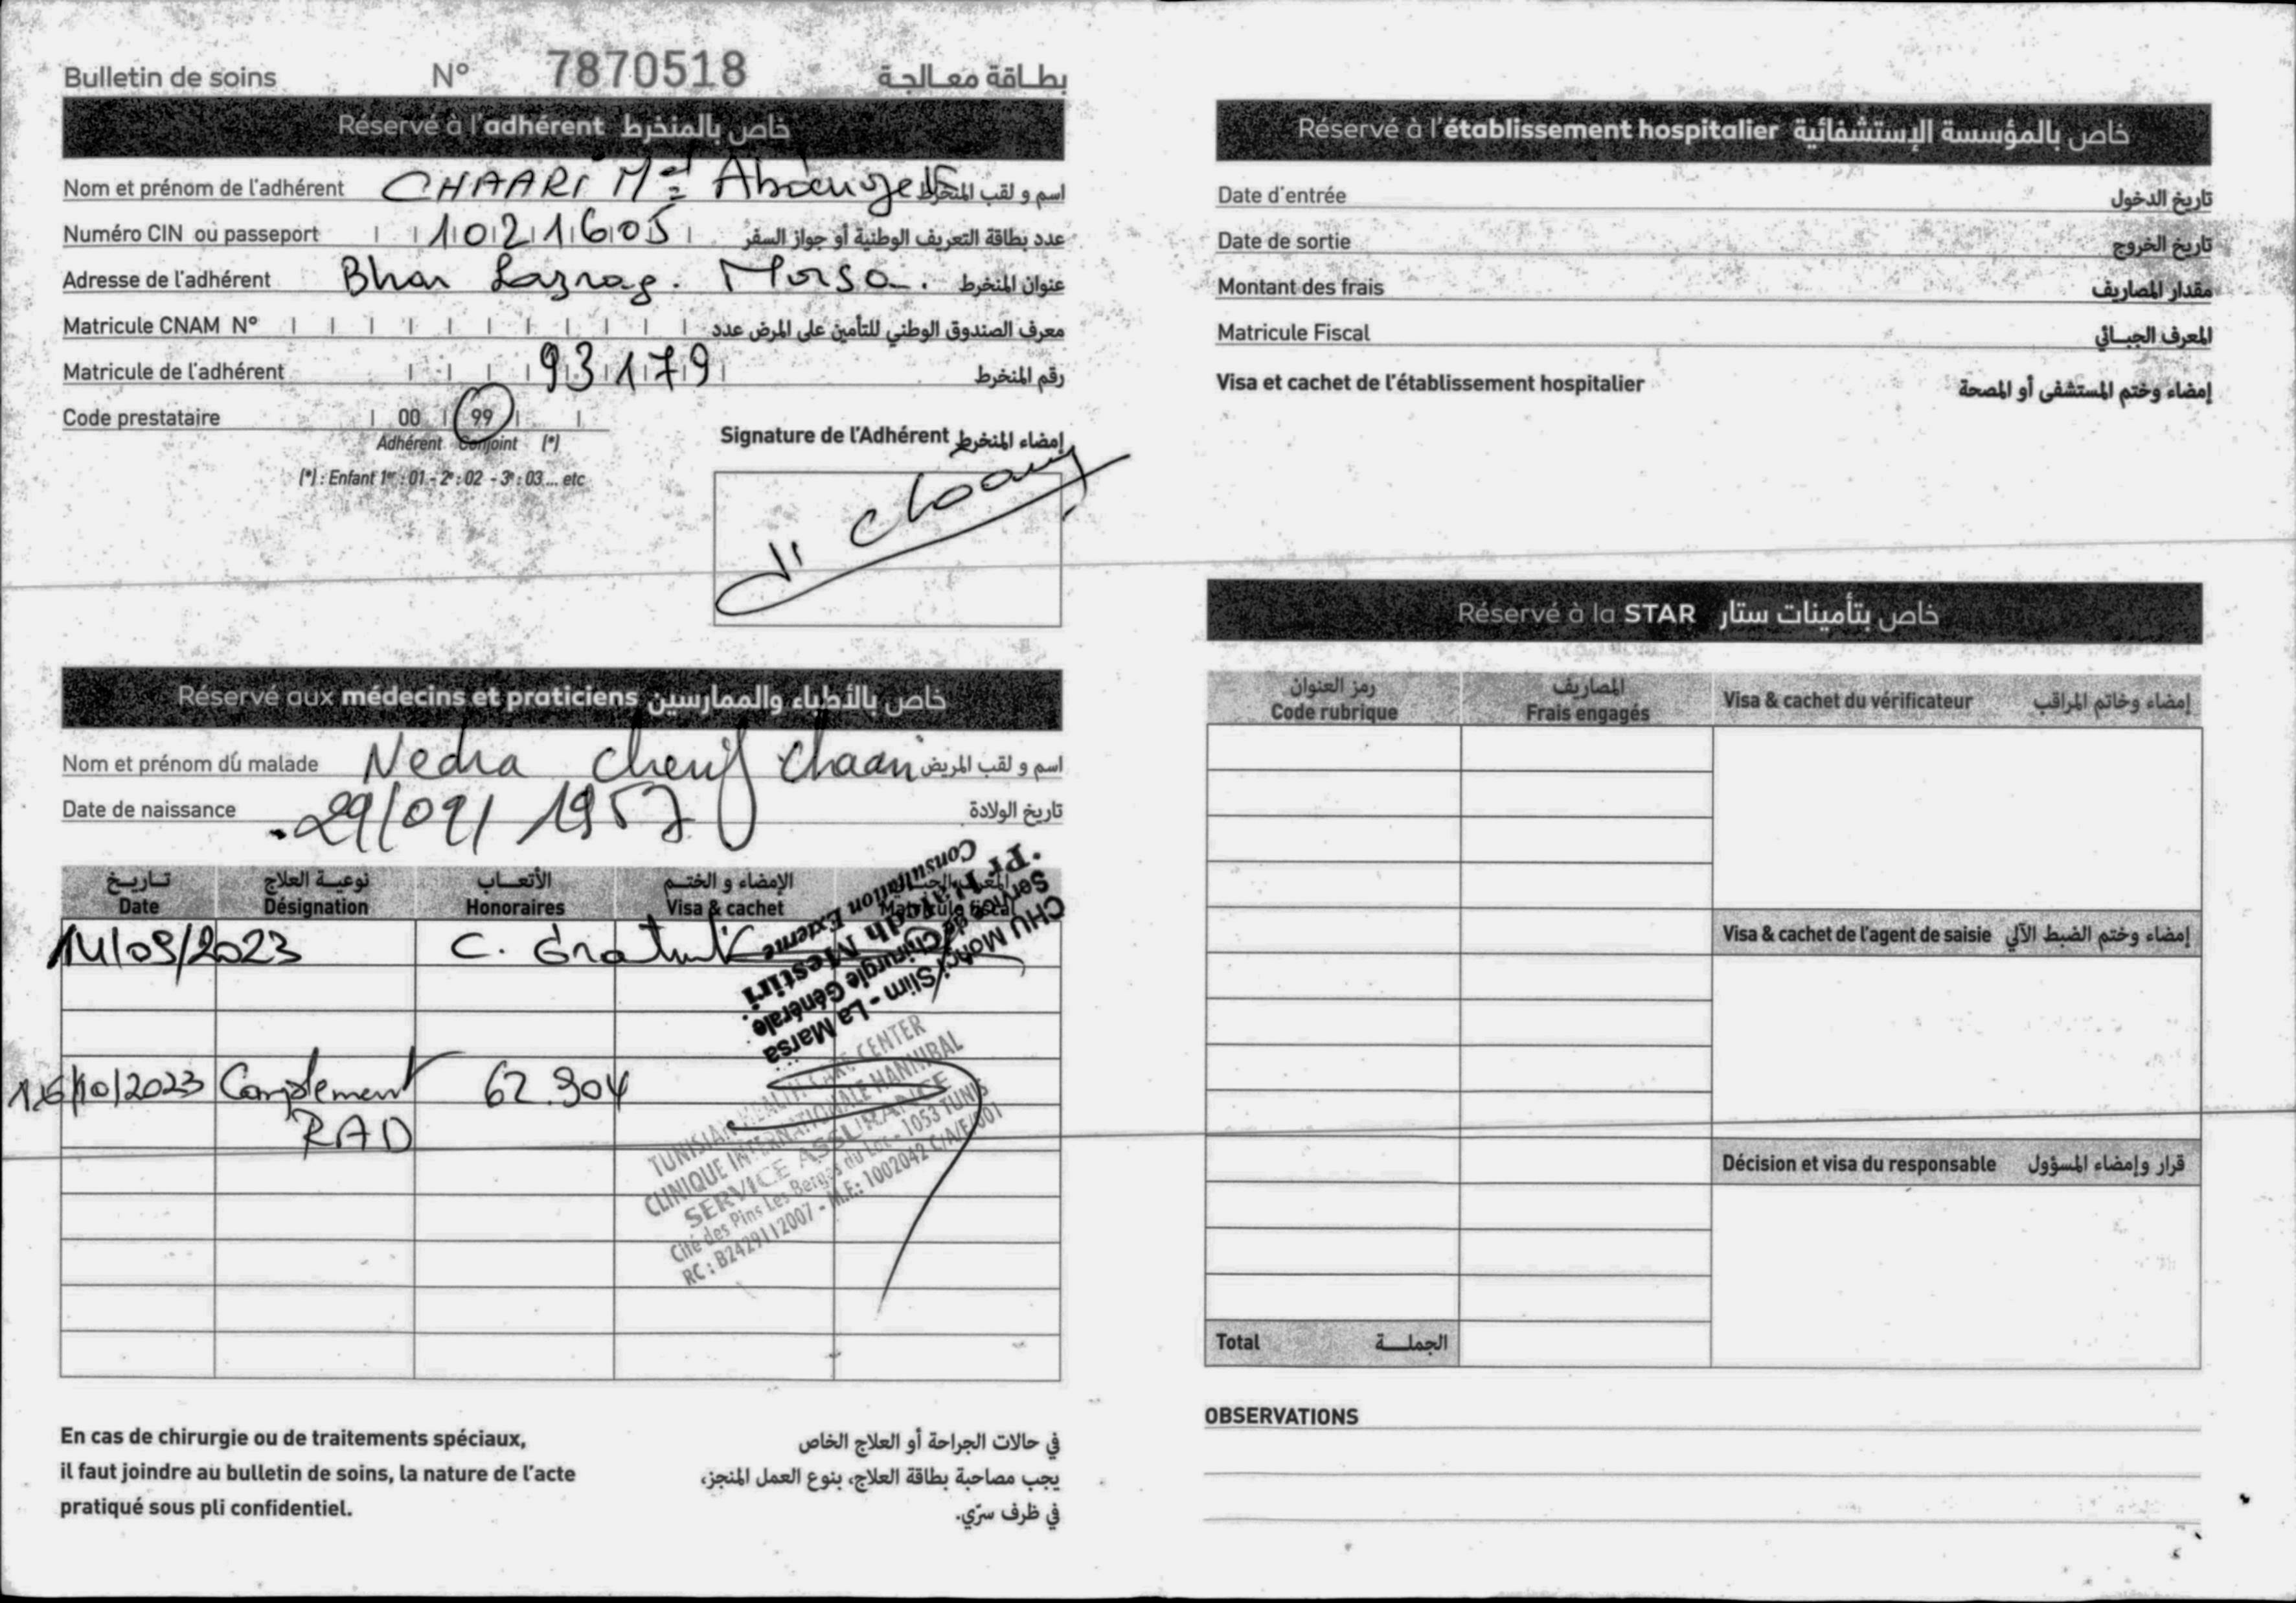 Bulletin de soins N° 7870518 بطاقة معالجة
Réservé à l'adhérent خاص بالمنخرط
Nom et prénom de l'adhérent CHAARI Md اسم و لقب المنخرط
Numéro CIN ou passeport 1021605 عدد بطاقة التعريف الوطنية أو جواز السفر
Adresse de l'adhérent Bhar Lazrag. Marsa. عنوان المنخرط
Matricule CNAM N° معرف الصندوق الوطني للتأمين على المرض عدد
Matricule de l'adhérent 93179 رقم المنخرط
Code prestataire 00 99
Adhérent Conjoint (*)
(*) : Enfant 1er : 01 - 2e : 02 - 3e : 03 ... etc
Signature de l'Adhérent إمضاء المنخرط
Réservé aux médecins et praticiens خاص بالأطباء والممارسين
Nom et prénom du malade Nedra Cherif Chaari اسم و لقب المريض
Date de naissance 29/09/1957 تاريخ الولادة
تاريخ نوعية العلاج الأتعاب الإمضاء و الختم المعرف الجبائي
Date Désignation Honoraires Visa & cachet Matricule fiscal
14/09/2023 C. Gratuite
Consultation Externe
Pr. Mestiri
Service de Chirurgie Générale
CHU Mongi Slim - La Marsa
16/10/2023 Complement 62.904
RAD
TUNISIAN HEALTH CARE CENTER
CLINIQUE INTERNATIONALE HANNIBAL
SERVICE ASSURANCE
Cité des Pins Les Berges du Lac - 1053 TUNIS
RC : B2429112007 - M.F.: 1002042 C/A/E/001
En cas de chirurgie ou de traitements spéciaux,
il faut joindre au bulletin de soins, la nature de l'acte
pratiqué sous pli confidentiel.
في حالات الجراحة أو العلاج الخاص
يجب مصاحبة بطاقة العلاج، بنوع العمل المنجز،
في ظرف سرّي.
Réservé à l'établissement hospitalier خاص بالمؤسسة الإستشفائية
Date d'entrée تاريخ الدخول
Date de sortie تاريخ الخروج
Montant des frais مقدار المصاريف
Matricule Fiscal المعرف الجبائي
Visa et cachet de l'établissement hospitalier إمضاء وختم المستشفى أو المصحة
Réservé à la STAR خاص بتأمينات ستار
رمز العنوان المصاريف
Code rubrique Frais engagés Visa & cachet du vérificateur إمضاء وخاتم المراقب
Visa & cachet de l'agent de saisie إمضاء وختم الضبط الآلي
Décision et visa du responsable قرار وإمضاء المسؤول
Total الجملة
OBSERVATIONS